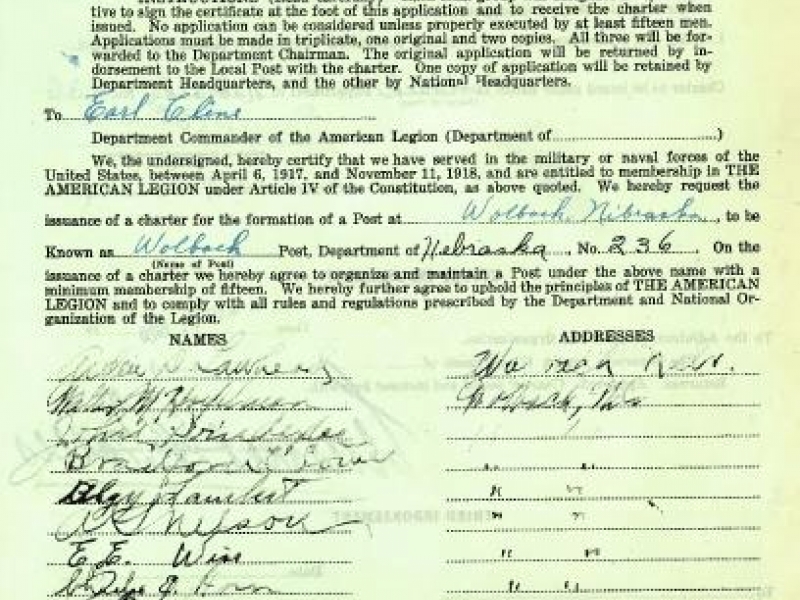 tive to sign the certificate at the foot of this application and to receive the charter when
issued. No application can be considered unless properly executed by at least fifteen men.
Applications must be made in triplicate, one original and two copies. All three will be for-
warded to the Department Chairman. The original application will be returned by in-
dorsement to the Local Post with the charter. One copy of application will be retained by
Department Headquarters, and the other by National Headquarters.
To Earl Cline
Department Commander of the American Legion (Department of........................)
We, the undersigned, hereby certify that we have served in the military or naval forces of the
United States, between April 6, 1917, and November 11, 1918, and are entitled to membership in THE
AMERICAN LEGION under Article IV of the Constitution, as above quoted. We hereby request the
issuance of a charter for the formation of a Post at Wolbach, Nebraska, to be
Known as Wolbach Post, Department of Nebraska, No. 236. On the
(Name of Post)
issuance of a charter we hereby agree to organize and maintain a Post under the above name with a
minimum membership of fifteen. We hereby further agree to uphold the principles of THE AMERICAN
LEGION and to comply with all rules and regulations prescribed by the Department and National Or-
ganization of the Legion.
NAMES ADDRESSES
Wolbach,
Lambert " "
Nelson " "
E. E. " "
" "